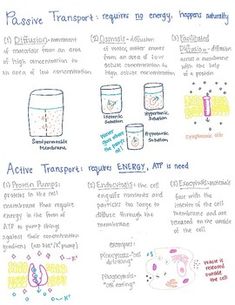 Passive Transport: requires no energy, happens naturally
(1) Diffusion- movement
of materials from an area
of high concentration to
an area of low concentration
(2) Osmosis- diffusion
of water; water moves
from an area of low
solute concentration to
high solute concentration
(3) Facilitated
Diffusion- diffusion
across a membrane
with the help
of a protein
Isotonic
Solution
Hypertonic
Solution
Hypotonic
Solution
Semipermeable
Membrane
Active Transport: requires ENERGY, ATP is need
(1) Protein Pumps:
proteins in the cell
membrane that require
energy in the form of
ATP to pump things
against their concentration
gradients
(2) Endocytosis: the cell
engulfs materials and
particles too large to
diffuse through the
membrane
examples:
pinocytosis- "cell
drinking"
phagocytosis-
"cell eating"
(3) Exocytosis:
fuse with the
of the cell
membrane and are
released on the outside
of the cell
waste is
released
outside
the cell